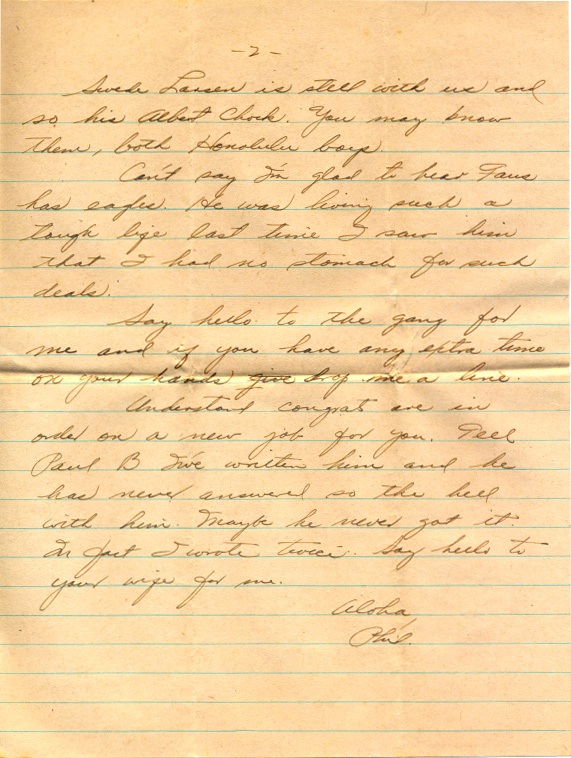 -2-
Swede Larsen is still with us and
so his Albert Chock. You may know
them, both Honolulu boys.
Can't say I'm glad to hear Taus
has eagles. He was living such a
tough life last time I saw him
that I had no stomach for such
deals.
Say hello to the gang for
me and if you have any extra time
on your hands give drop me a line.
Understand congrats are in
order on a new job for you. Tell
Paul B I've written him and he
has never answered so the hell
with him. Maybe he never got it.
In fact I wrote twice. Say hello to
your wife for me.
Aloha,
Phil.